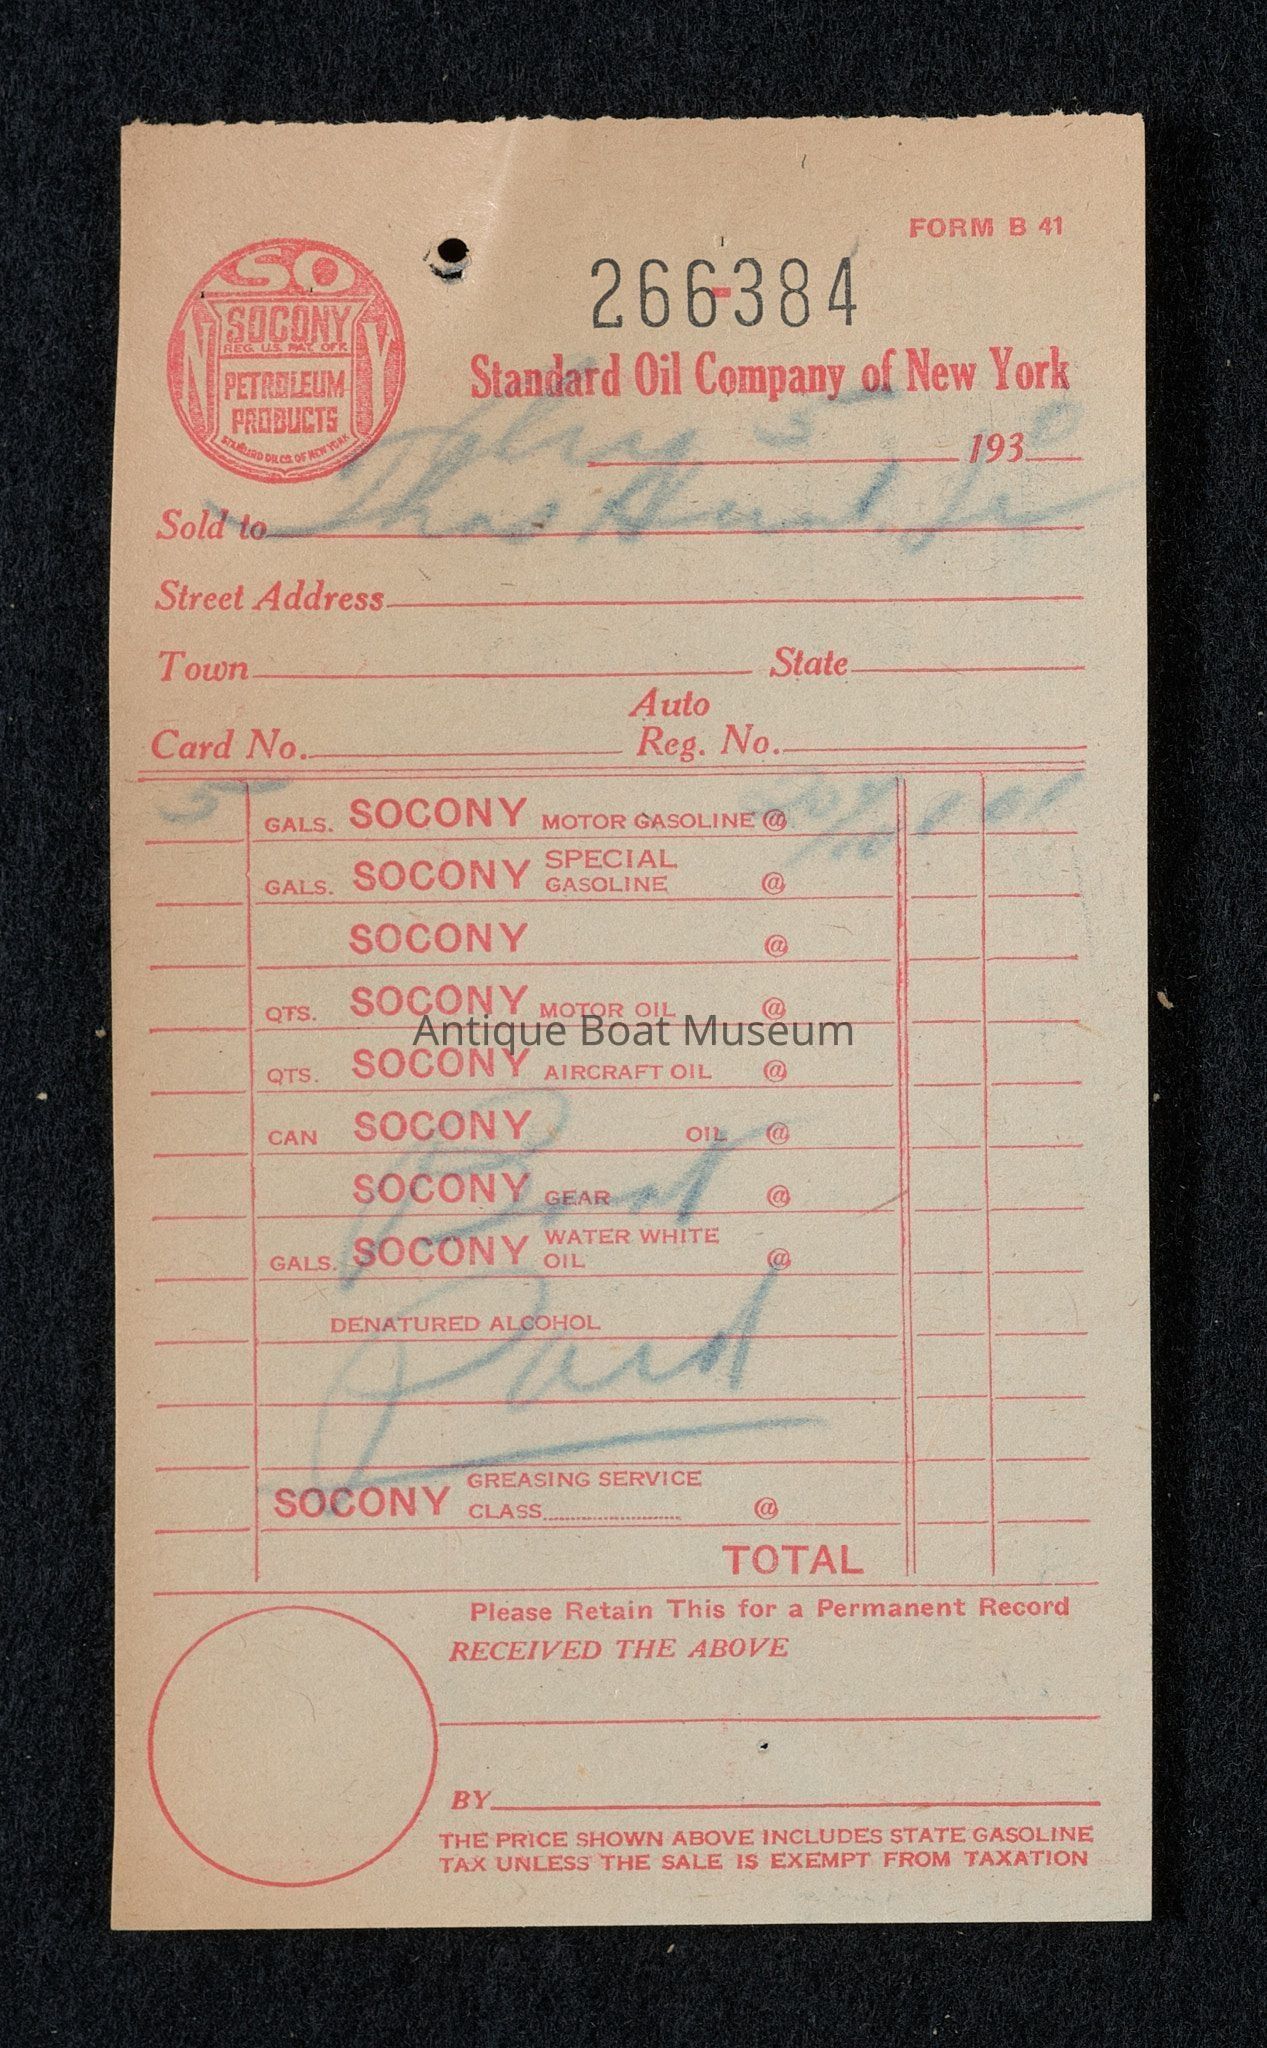 FORM B 41
SO
NY
SOCONY
REG. U.S. PAT. OFF.
PETROLEUM
PRODUCTS
STANDARD OIL CO. OF NEW YORK
266-384
Standard Oil Company of New York
5 193 0
Sold to Thos Hunt Jr
Street Address
Town State
Auto
Card No. Reg. No.
5 GALS. SOCONY MOTOR GASOLINE @ 1 01
GALS. SOCONY SPECIAL GASOLINE @
SOCONY @
QTS. SOCONY MOTOR OIL @
Antique Boat Museum
QTS. SOCONY AIRCRAFT OIL @
CAN SOCONY OIL @
Boat
SOCONY GEAR @
GALS. SOCONY WATER WHITE OIL @
DENATURED ALCOHOL
Paid
SOCONY GREASING SERVICE
CLASS @
TOTAL
Please Retain This for a Permanent Record
RECEIVED THE ABOVE
BY
THE PRICE SHOWN ABOVE INCLUDES STATE GASOLINE
TAX UNLESS THE SALE IS EXEMPT FROM TAXATION